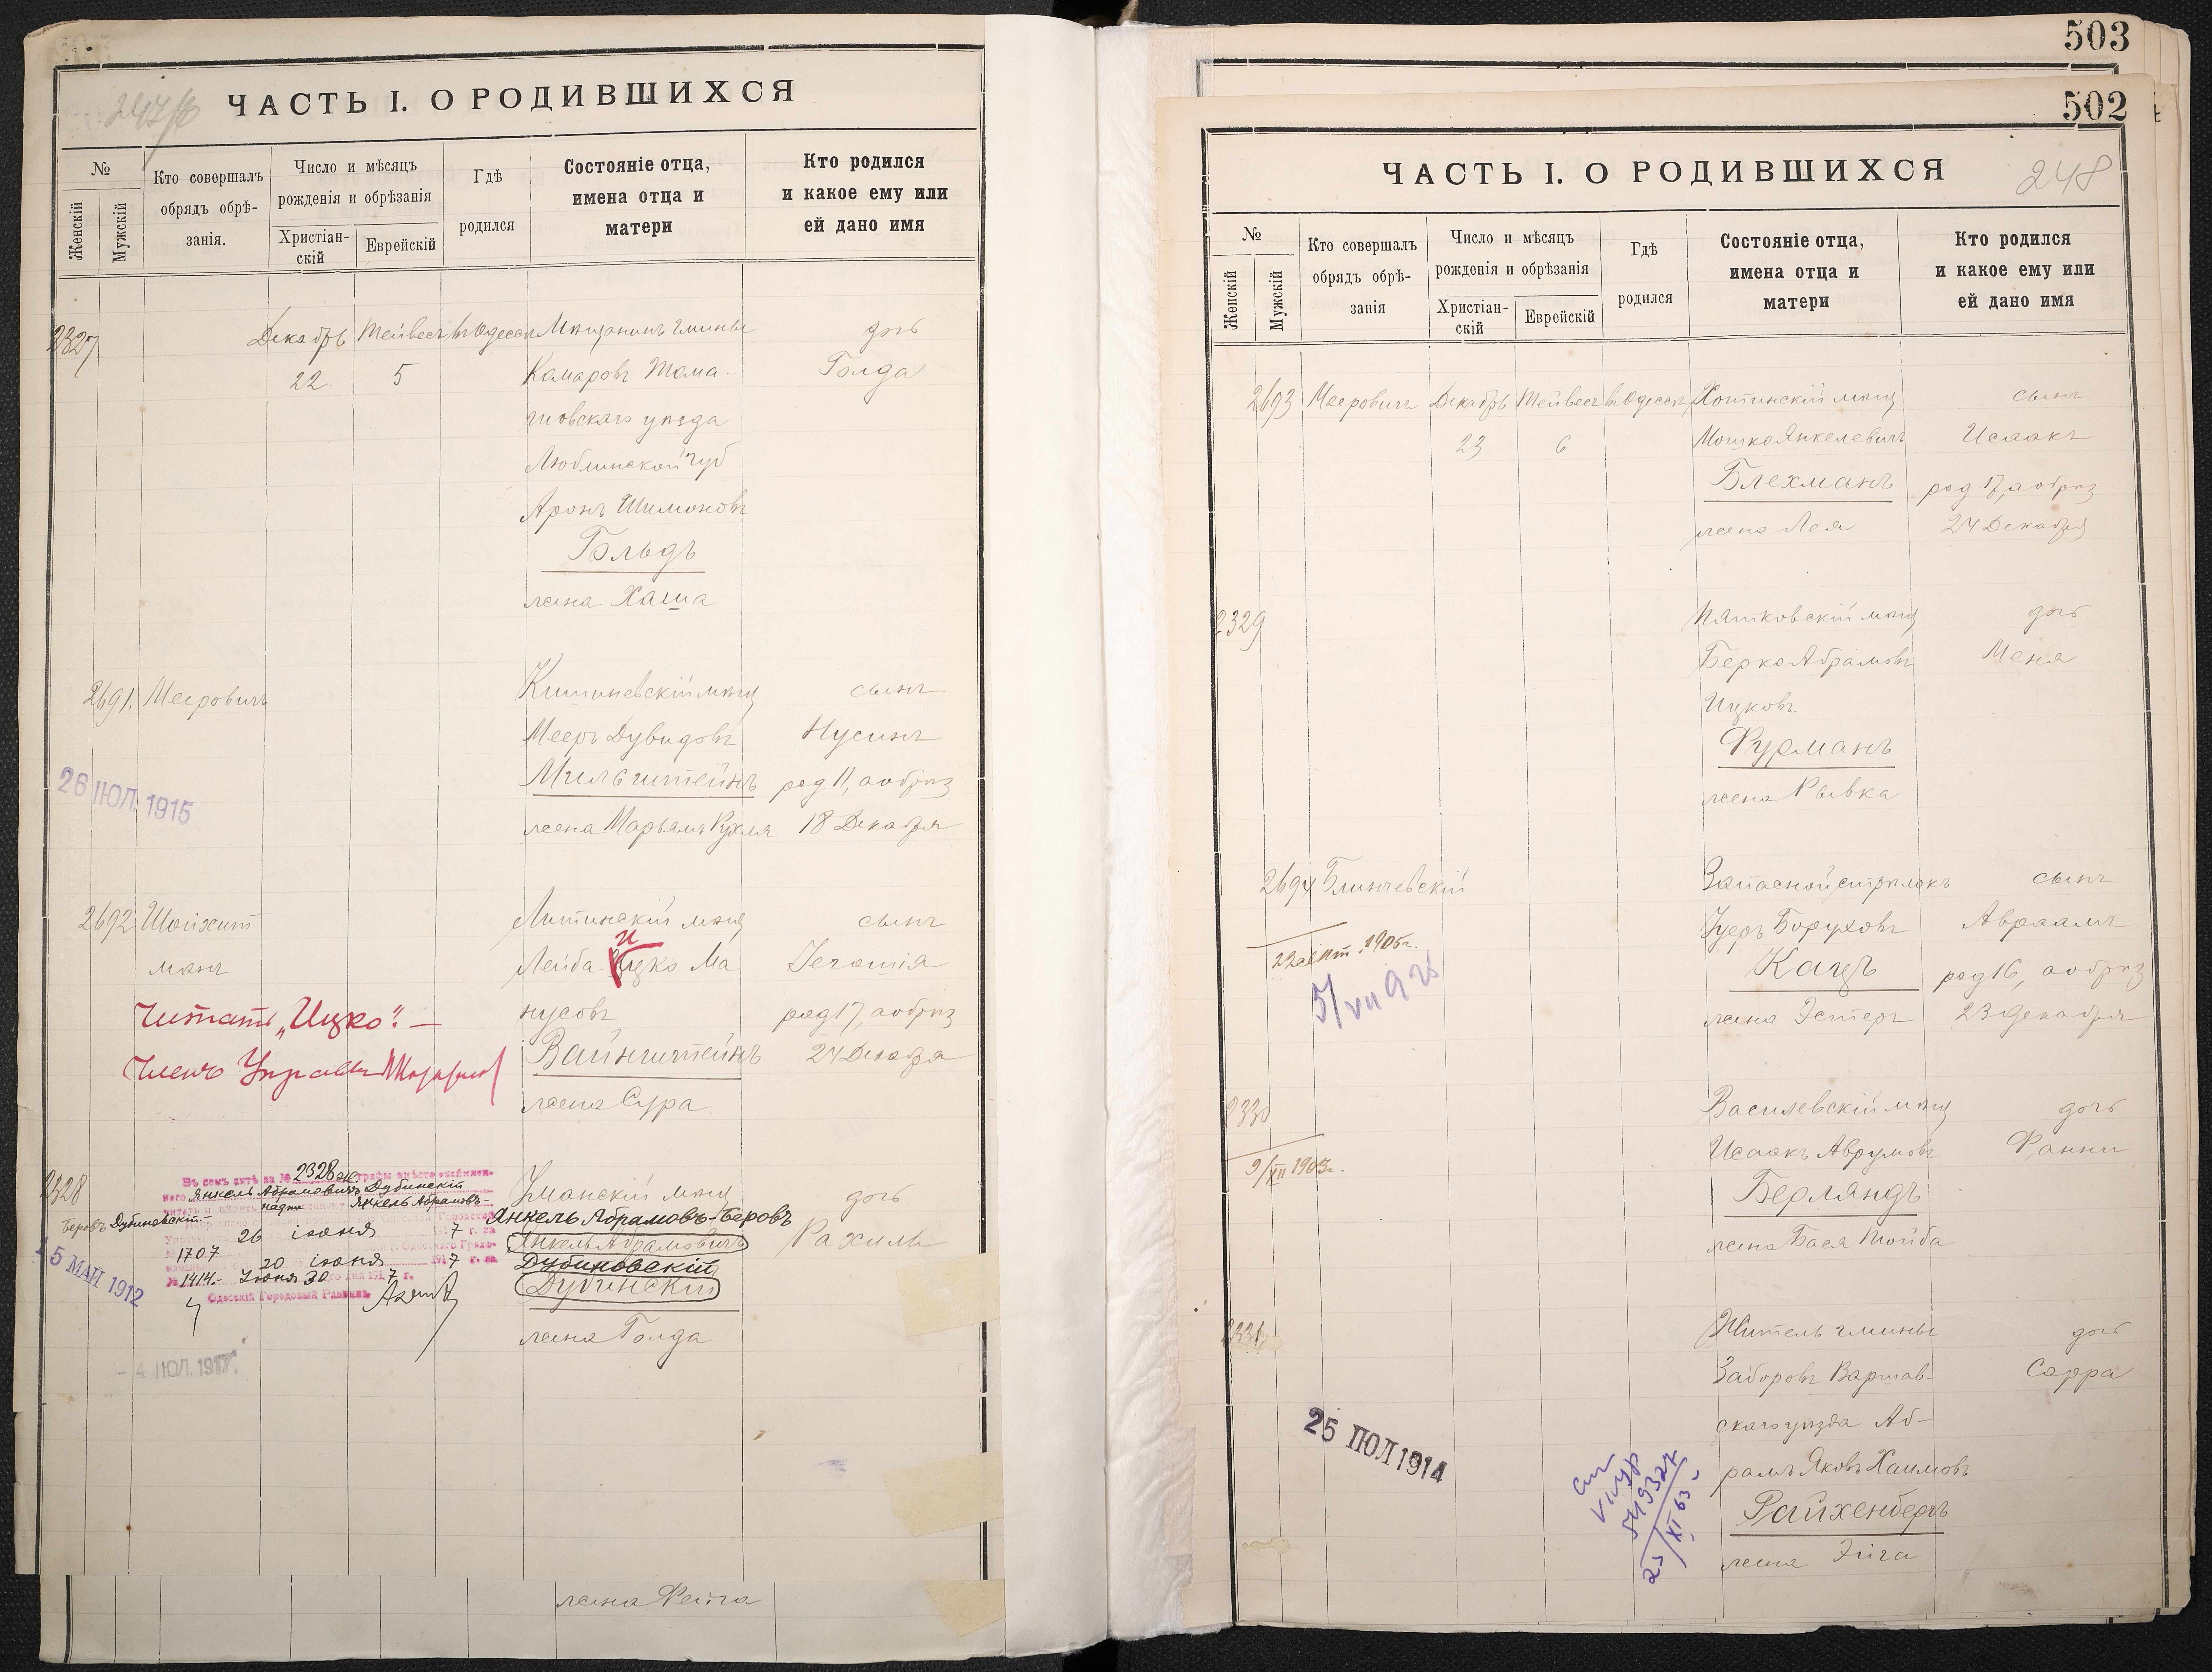 247/б
ЧАСТЬ I. О РОДИВШИХСЯ
№
Женскій
Мужскій
Кто совершалъ
обрядъ обрѣ-
занія.
Число и мѣсяцъ
рожденія и обрѣзанія
Христіан-
скій
Еврейскій
Гдѣ
родился
Состояніе отца,
имена отца и
матери
Кто родился
и какое ему или
ей дано имя
2327 Декабрь Тейвесъ въ Одессѣ Мѣщанинъ гмины дочь
22 5 Камаровъ Тома- Голда
шовскаго уѣзда
Люблинской губ
Аронъ Шимоновъ
Гольдъ
жена Хаша
2691. Мееровичъ Кишиневскій мѣщ сынъ
Мееръ Дувидовъ Нусинъ
Мильштейнъ род 11, а обрѣз
жена Марьямъ Рухля 18 Декабря
26 ІЮЛ. 1915
2692 Шойхит Литинскій мѣщ сынъ
манъ Лейба Ицко Ма Іегошія
и
нусовъ род 17, а обрѣз
Вайнштейнъ 24 Декабря
жена Сура
Читать „Ицко“. —
Членъ Управы
2328 Уманскій мѣщ дочь
Янкель Абрамовъ-Беровъ
Янкель Абрамовичъ Рахиль
Дубиновскій
Дубинскій
жена Голда
Въ семъ актѣ за № 2328 ж. графы вмѣсто
Янкель Абрамовичъ Дубинскій
надо Янкель Абрамовъ-
Беровъ Дубиновскій.-
26 іюня 7 г. за
1707
20 іюня 7 г. за
№ 1414.- Іюня 30 191 7 г.
Одесскій Городовой Раввинъ
15 МАЙ 1912
- 4 ІЮЛ. 1917.
жена Рейза
503
502
ЧАСТЬ I. О РОДИВШИХСЯ
248
№
Женскій
Мужскій
Кто совершалъ
обрядъ обрѣ-
занія
Число и мѣсяцъ
рожденія и обрѣзанія
Христіан-
скій
Еврейскій
Гдѣ
родился
Состояніе отца,
имена отца и
матери
Кто родился
и какое ему или
ей дано имя
2693 Мееровичъ Декабрь Тейвесъ въ Одессѣ Хотинскій мѣщ сынъ
23 6 Мошко Янкелевичъ Исаакъ
Блехманъ род 17, а обрѣз
жена Лея 24 Декабря
2329 Пятковскій мѣщ дочь
Берко Абрамовъ Меня
Ицковъ
Фурманъ
жена Рывка
2694 Блинчевскій Запасной стрѣлокъ сынъ
Іцеръ Боруховъ Авраамъ
Кацъ род 16, а обрѣз
жена Эстеръ 23 Декабря
1905г.
5/VII 928
2330 Василевскій мѣщ дочь
Исаакъ Аврумовъ Фанни
Берляндъ
жена Бася Тойба
9/XII 1903г.
2331 Житель гмины дочь
Заборовъ Варшав- Сарра
скаго уѣзда Аб-
рамъ Яковъ Хаимовъ
Райхенбергъ
жена Энга
25 ІЮЛ 1914
549327
23/XI 63